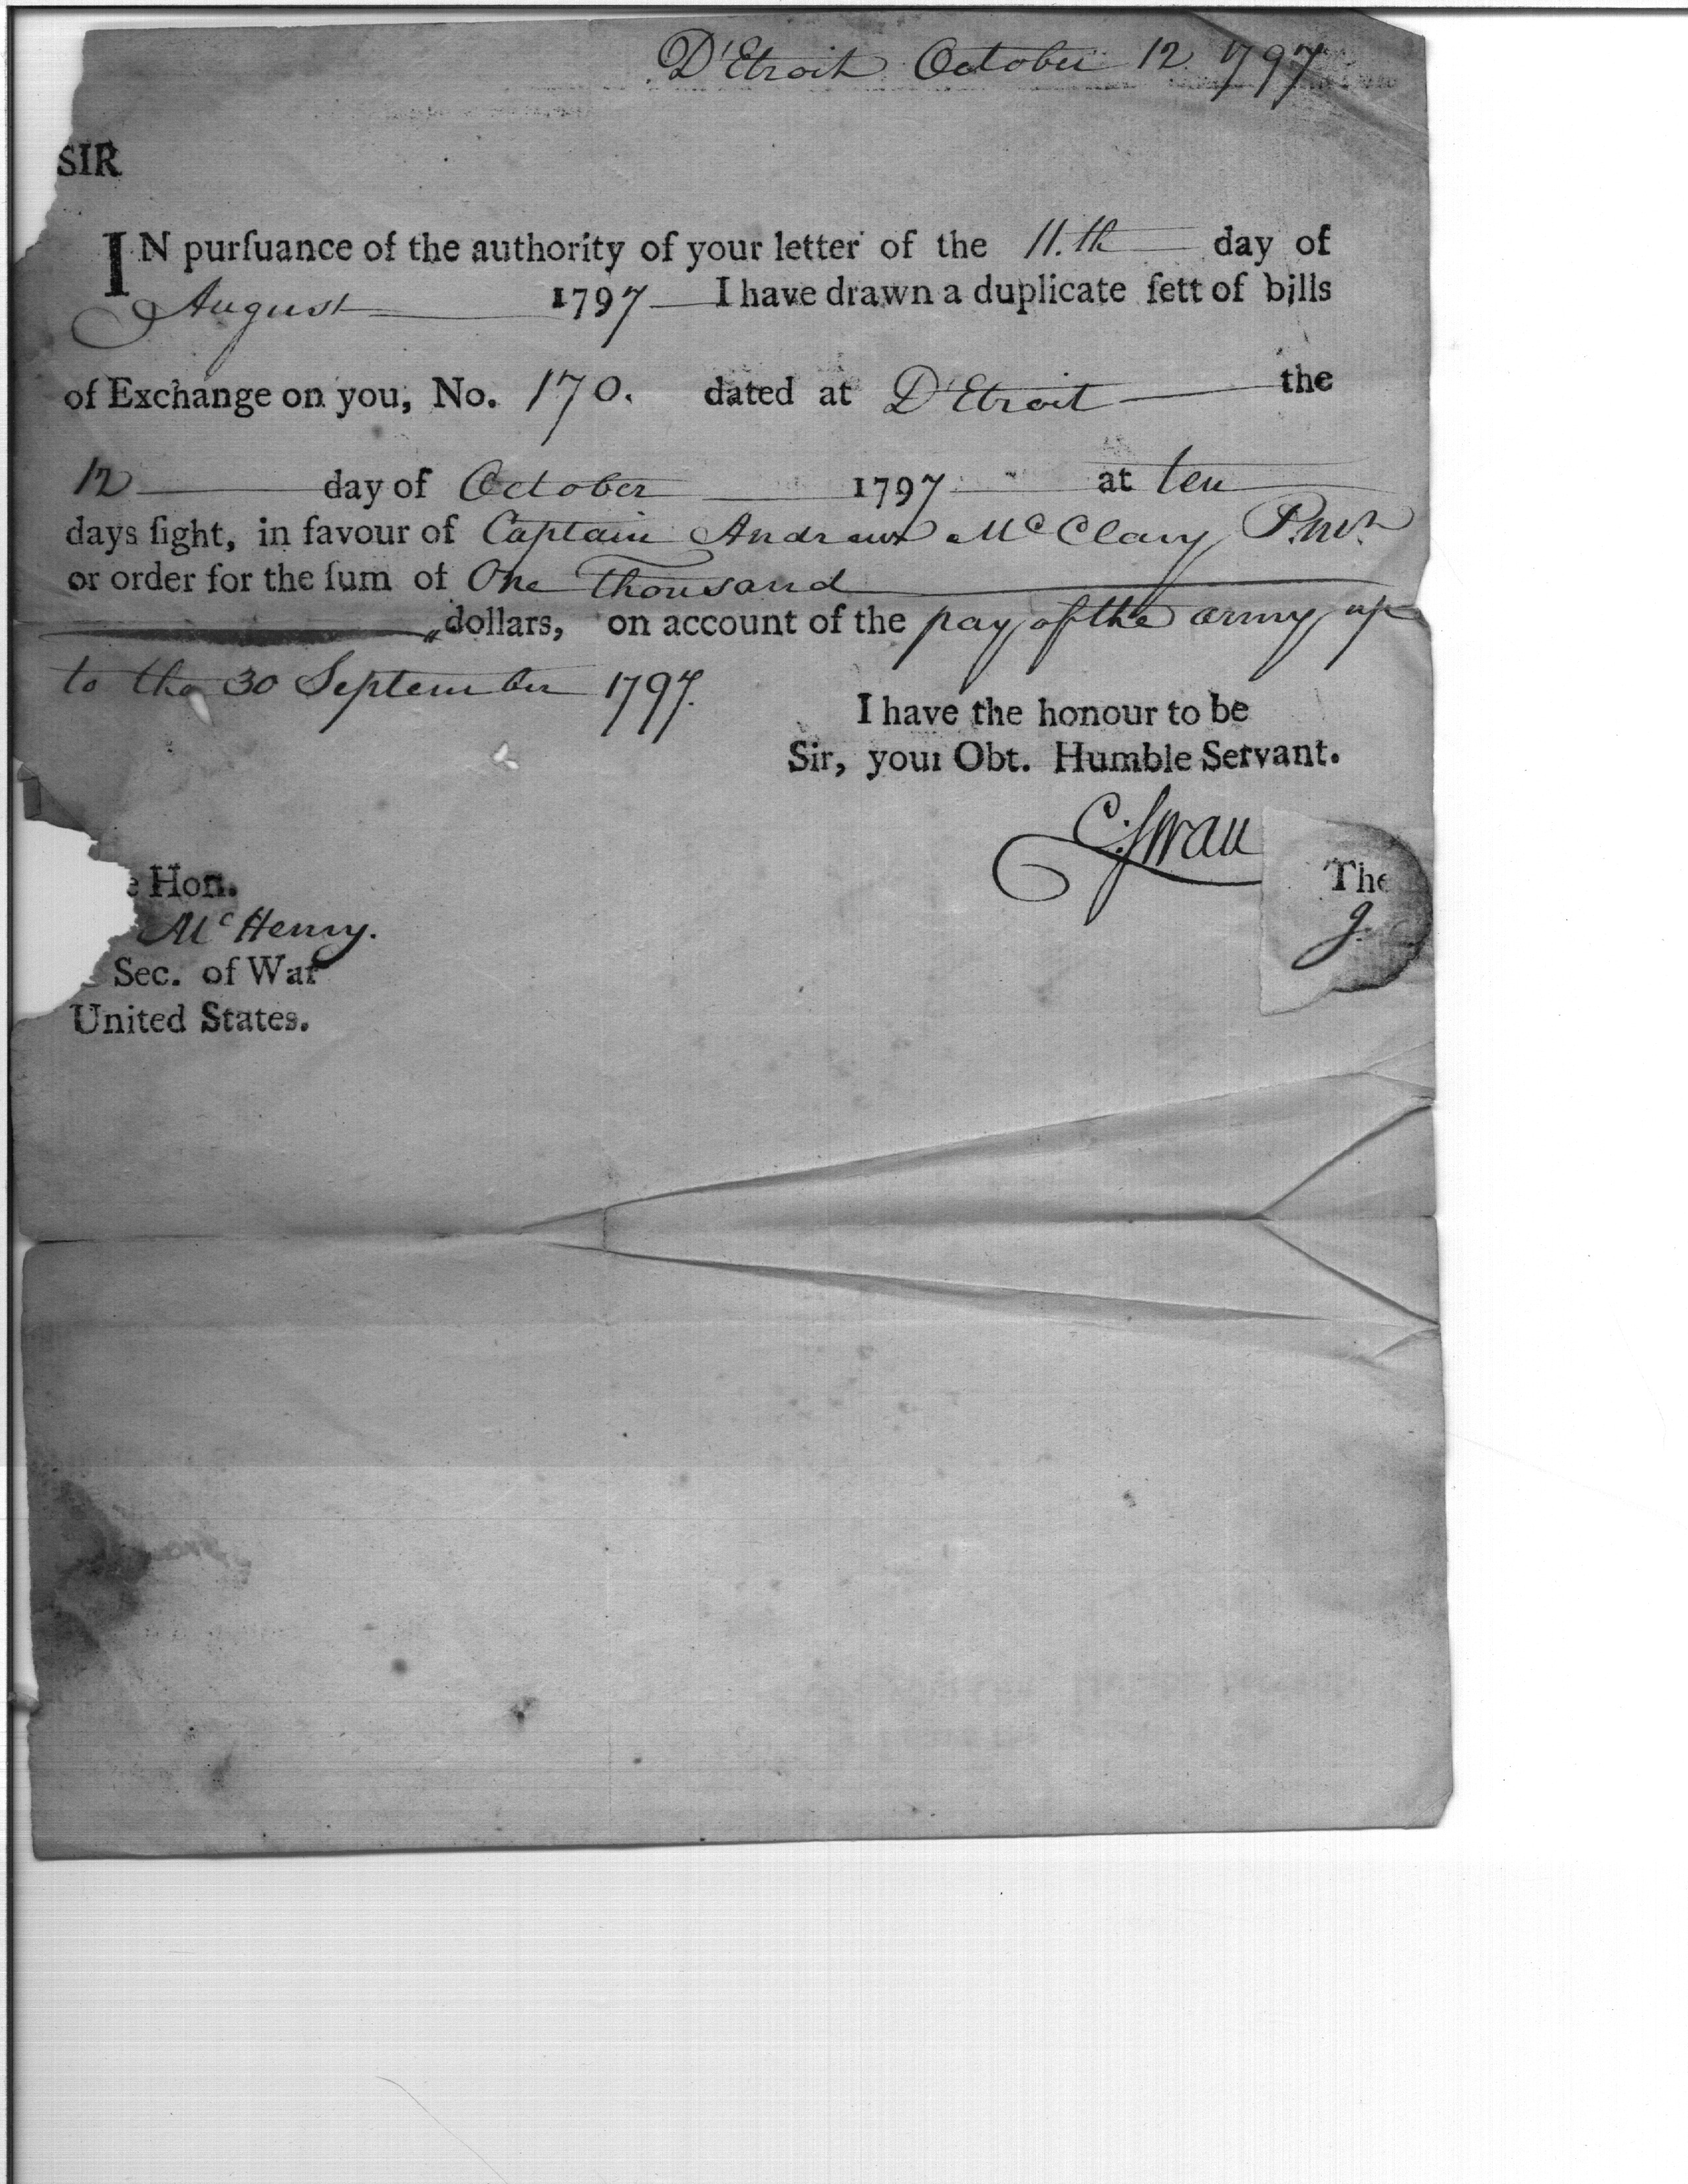 D'Etroit October 12 1797
SIR
IN purſuance of the authority of your letter of the 11.th day of
August 1797 I have drawn a duplicate ſett of bills
of Exchange on you, No. 170. dated at D'Etroit the
12 day of October 1797 at ten
days ſight, in favour of Captain Andrew McClary
or order for the ſum of One Thousand
dollars, on account of the pay of the army up
to the 30 September 1797.
I have the honour to be
Sir, your Obt. Humble Servant.
C. Swan
The
J.
e Hon.
McHenry.
Sec. of War
United States.